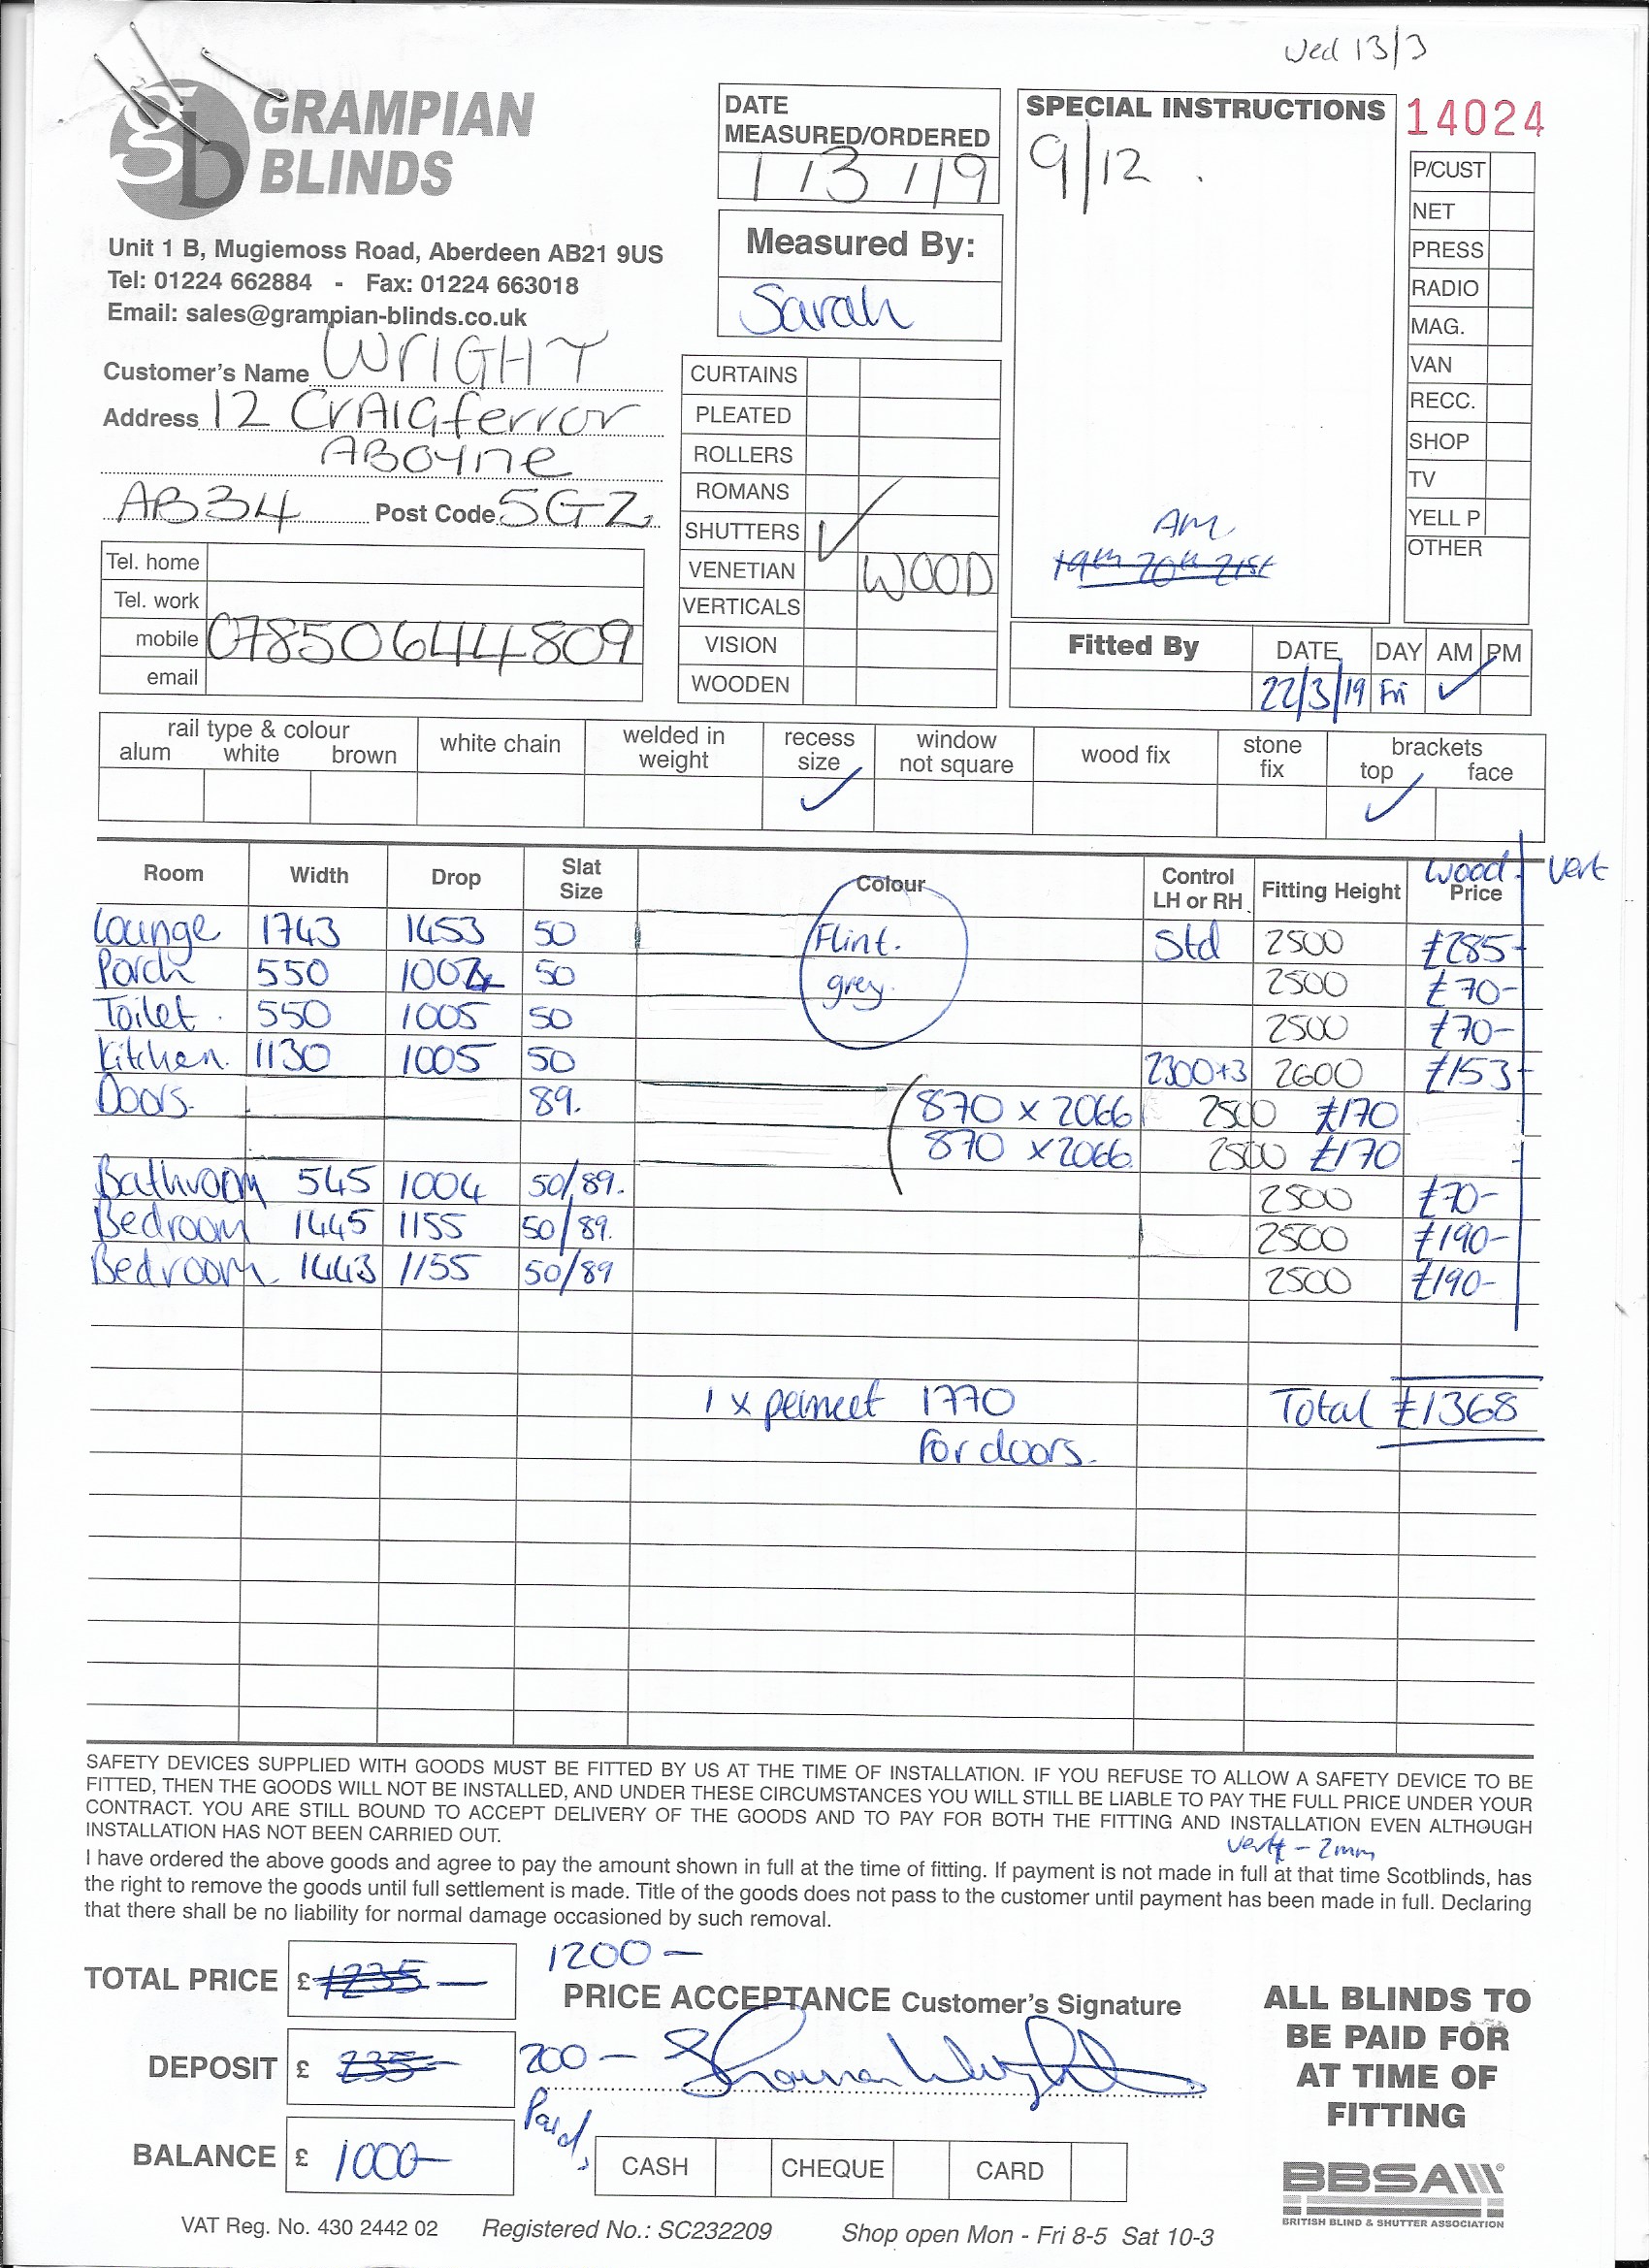 Wed 13/3
GRAMPIAN
BLINDS
Unit 1 B, Mugiemoss Road, Aberdeen AB21 9US
Tel: 01224 662884 - Fax: 01224 663018
Email: sales@grampian-blinds.co.uk
Customer's Name WRIGHT
Address 12 CRAIGferror
ABOYNE
AB34 Post Code 5GZ
Tel. home
Tel. work
mobile 07850644809
email
DATE
MEASURED/ORDERED
1/3/19
Measured By:
Sarah
CURTAINS
PLEATED
ROLLERS
ROMANS
SHUTTERS
VENETIAN ✓ WOOD
VERTICALS
VISION
WOODEN
SPECIAL INSTRUCTIONS
9/12 .
AM
19th 20th 21st
14024
P/CUST
NET
PRESS
RADIO
MAG.
VAN
RECC.
SHOP
TV
YELL P
OTHER
Fitted By DATE DAY AM PM
22/3/19 Fri ✓
rail type & colour
alum white brown
white chain
welded in
weight
recess
size
✓
window
not square
wood fix
stone
fix
brackets
top face
✓
Room Width Drop Slat Size Colour Control LH or RH Fitting Height Wood Price Vert
Lounge 1743 1453 50 Flint. Std 2500 £285-
Porch 550 1004 50 grey. 2500 £70-
Toilet 550 1005 50 2500 £70-
Kitchen. 1130 1005 50 2300+3 2600 £153-
Doors. 89. 870 x 2066 2500 £170
870 x 2066 2500 £170
Bathroom 545 1004 50/89. 2500 £70-
Bedroom 1445 1155 50/89. 2500 £190-
Bedroom 1443 1155 50/89 2500 £190-
1 x 1770 Total £1368
for doors.
SAFETY DEVICES SUPPLIED WITH GOODS MUST BE FITTED BY US AT THE TIME OF INSTALLATION. IF YOU REFUSE TO ALLOW A SAFETY DEVICE TO BE
FITTED, THEN THE GOODS WILL NOT BE INSTALLED, AND UNDER THESE CIRCUMSTANCES YOU WILL STILL BE LIABLE TO PAY THE FULL PRICE UNDER YOUR
CONTRACT. YOU ARE STILL BOUND TO ACCEPT DELIVERY OF THE GOODS AND TO PAY FOR BOTH THE FITTING AND INSTALLATION EVEN ALTHOUGH
INSTALLATION HAS NOT BEEN CARRIED OUT.
Vert - 2mm
I have ordered the above goods and agree to pay the amount shown in full at the time of fitting. If payment is not made in full at that time Scotblinds, has
the right to remove the goods until full settlement is made. Title of the goods does not pass to the customer until payment has been made in full. Declaring
that there shall be no liability for normal damage occasioned by such removal.
TOTAL PRICE £ 1235- 1200-
PRICE ACCEPTANCE Customer's Signature
DEPOSIT £ 235- 200-
Paid,
BALANCE £ 1000-
CASH CHEQUE CARD
ALL BLINDS TO
BE PAID FOR
AT TIME OF
FITTING
BBSA
BRITISH BLIND & SHUTTER ASSOCIATION
VAT Reg. No. 430 2442 02 Registered No.: SC232209 Shop open Mon - Fri 8-5 Sat 10-3